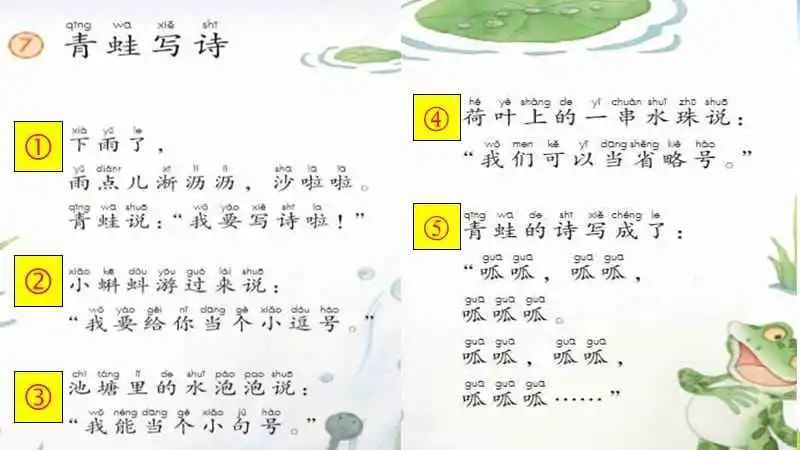 qīng wā xiě shī
7 青蛙写诗
①
xià yǔ le
下雨了，
yǔ diǎnr xī lì lì shā lā lā
雨点儿淅沥沥，沙啦啦。
qīng wā shuō wǒ yào xiě shī la
青蛙说：“我要写诗啦！”
②
xiǎo kē dǒu yóu guò lái shuō
小蝌蚪游过来说：
wǒ yào gěi nǐ dāng gè xiǎo dòu hào
“我要给你当个小逗号。”
③
chí táng lǐ de shuǐ pào pao shuō
池塘里的水泡泡说：
wǒ néng dāng gè xiǎo jù hào
“我能当个小句号。”
④
hé yè shàng de yí chuàn shuǐ zhū shuō
荷叶上的一串水珠说：
wǒ men kě yǐ dāng shěng lüè hào
“我们可以当省略号。”
⑤
qīng wā de shī xiě chéng le
青蛙的诗写成了：
guā guā guā guā
“呱呱，呱呱，
guā guā guā
呱呱呱。
guā guā guā guā
呱呱，呱呱，
guā guā guā
呱呱呱……”